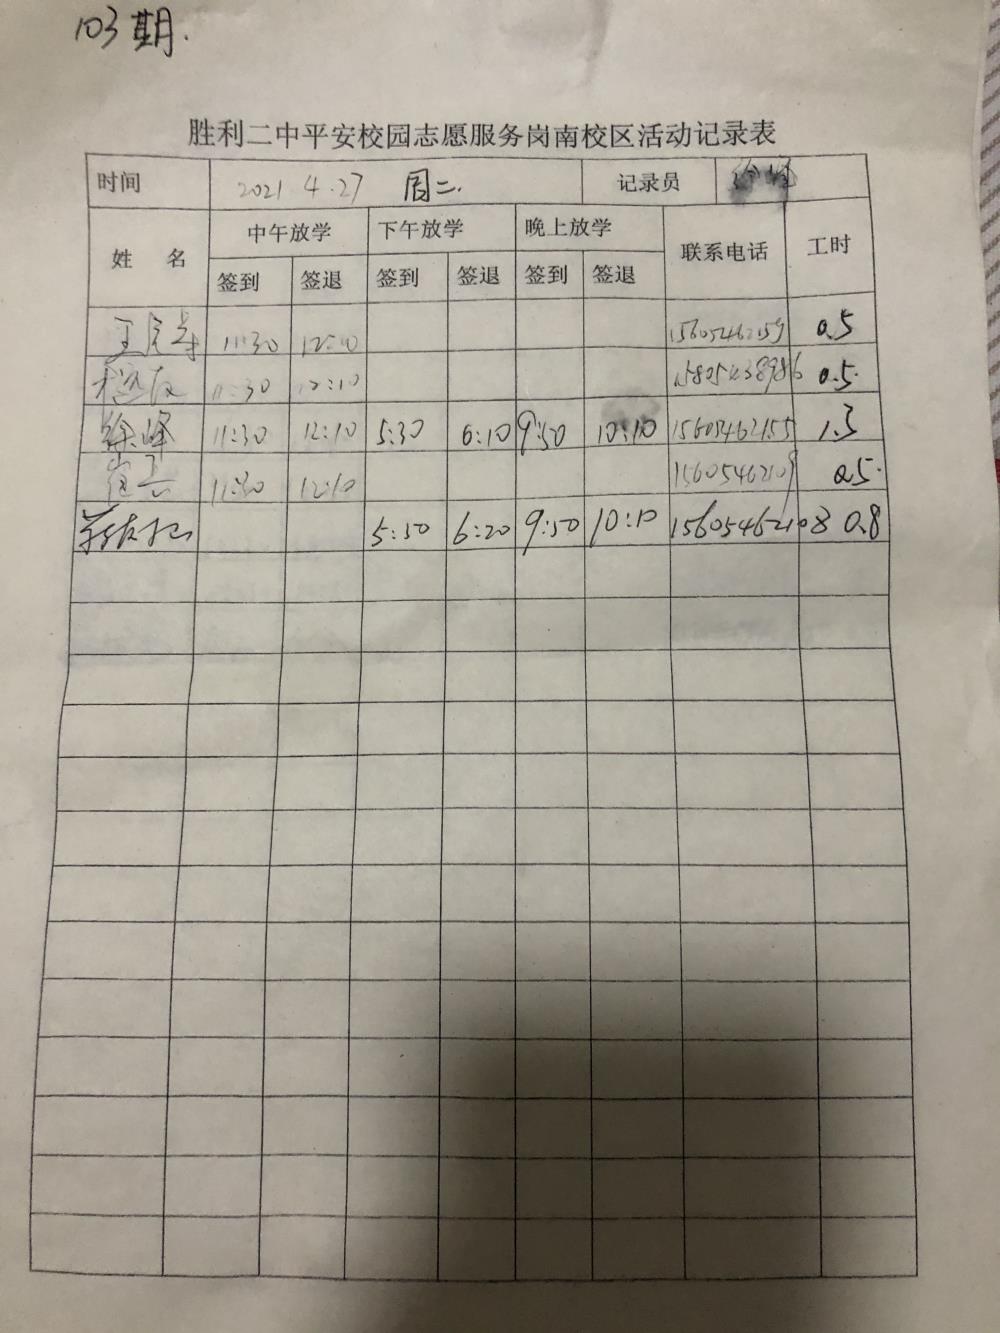 103期.
胜利二中平安校园志愿服务岗南校区活动记录表
时间 2021.4.27 周二. 记录员 徐峰
姓 名 中午放学 下午放学 晚上放学 联系电话 工时
签到 签退 签到 签退 签到 签退
11:30 12:10 15605462159 0.5
11:30 12:10 0.5.
徐峰 11:30 12:10 5:30 6:10 9:50 10:10 15605462155 1.3
11:30 12:10 15605462109 0.5.
5:50 6:20 9:50 10:10 15605462108 0.8